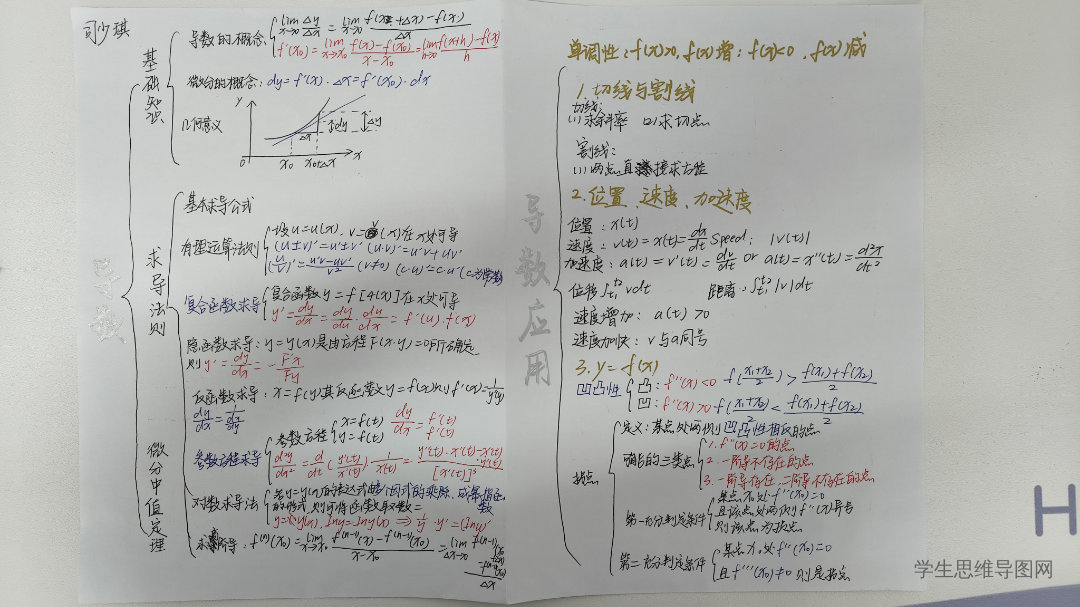 司少琪
导数
基础知识
导数的概念 lim x→0 Δy/Δx = lim x→0 f(x+Δx)-f(x)/Δx
f'(x₀) = lim x→x₀ f(x)-f(x₀)/x-x₀ = lim h→0 f(x+h)-f(x)/h
微分的概念: dy=f'(x)·Δx=f'(x₀)·dx
几何意义
y
dy
Δy
Δx
0 x₀ x₀+Δx x
求导法则
基本求导公式
有理运算法则
设u=u(x), v=v(x)在x处可导
(u±v)'=u'±v' (u·v)'=u'v+uv'
(u/v)'=u'v-uv'/v² (v≠0) (c·u)'=c·u'(c为常数)
复合函数求导
复合函数y=f[φ(x)]在x处可导
y'=dy/dx=dy/du·du/dx=f'(u)·f'(x)
隐函数求导: y=y(x)是由方程F(x·y)=0所确定
则y'=dy/dx=-F'x/Fy
反函数求导: x=f(y)其反函数y=f(x)则f'(x)=1/f'(y)
dy/dx=1/dx/dy
参数方程求导
参数方程 x=f(t) y=f(t) dy/dx=f'(t)/f'(t)
d²y/dx²=d/dt(y'(t)/x'(t))·1/x'(t)=y''(t)·x'(t)-x''(t)y'(t)/[x'(t)]³
对数求导法
若y=y(x)的表达式由多个因式的乘除、或幂指函数
的形式,则可将函数取对数=
y=y(x), lny=lny(x) ⇒ 1/y·y'=(lny)'
求高阶导: f⁽ⁿ⁾(x₀)=lim x→x₀ f⁽ⁿ⁻¹⁾(x)-f⁽ⁿ⁻¹⁾(x₀)/x-x₀=lim Δx→0 f⁽ⁿ⁻¹⁾(x₀+Δx)-f⁽ⁿ⁻¹⁾(x₀)/Δx
微分中值定理
导数应用
单调性:f'(x)>0, f(x)增; f'(x)<0, f(x)减
1.切线与割线
切线:
(1)求斜率 (2)求切点
割线:
(1)两点,直接求方程
2.位置、速度、加速度
位置: x(t)
速度: v(t)=x(t)=dx/dt Speed: |v(t)|
加速度: a(t)=v'(t)=dv/dt or a(t)=x''(t)=d²x/dt²
位移∫t₁t₂ vdt 距离: ∫t₁t₂|v|dt
速度增加: a(t)>0
速度加快: v与a同号
3.y=f(x)
凹凸性
凸: f''(x)<0 f(x₁+x₂/2)>f(x₁)+f(x₂)/2
凹: f''(x)>0 f(x₁+x₂/2)<f(x₁)+f(x₂)/2
拐点
定义:某点处两侧凹凸性相反的点
1.f''(x)=0的点
2.一阶导不存在的点
3.一阶导存在,二阶导不存在的点
第一充分判定条件
某点x₀处f''(x₀)=0
且该点处两侧f''(x)异号
则该点为拐点
第二充分判定条件
某点x₀处f''(x₀)=0
且f'''(x₀)≠0则是拐点
H
学生思维导图网